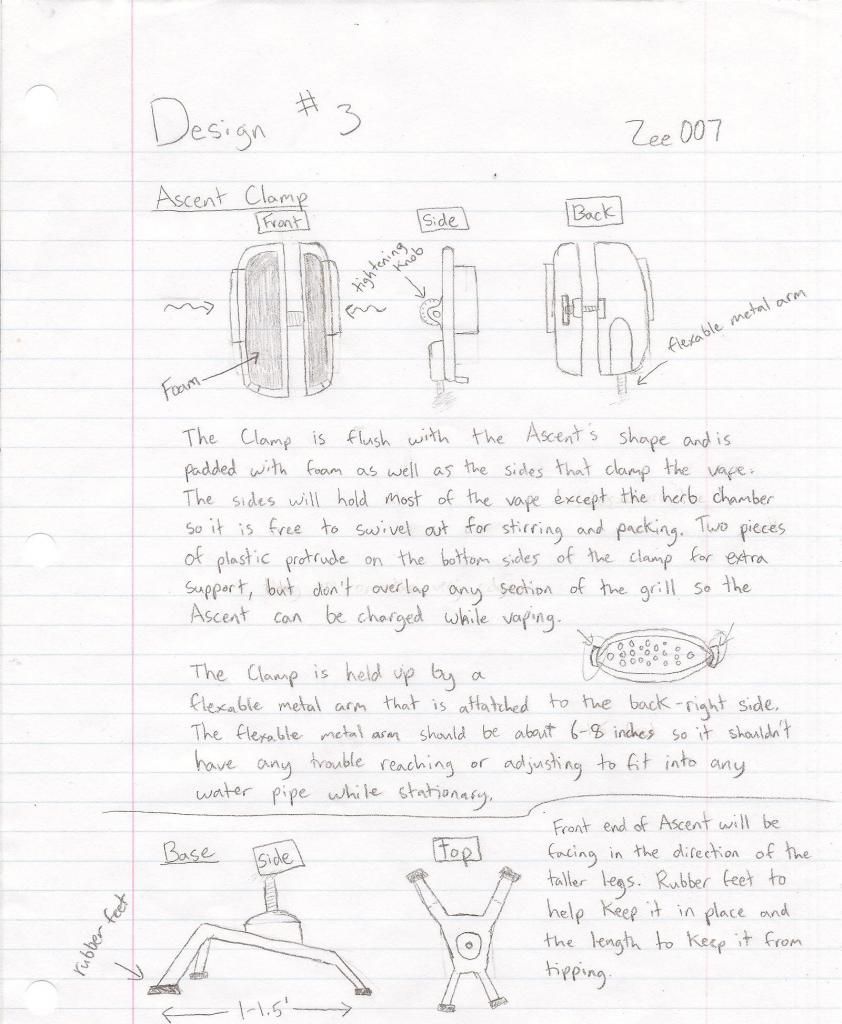 Design #3
Zee007
Ascent Clamp
Front
Side
Back
tightening
knob
flexable metal arm
Foam
The Clamp is flush with the Ascent's shape and is
padded with foam as well as the sides that clamp the vape.
The sides will hold most of the vape except the herb chamber
so it is free to swivel out for stirring and packing. Two pieces
of plastic protrude on the bottom sides of the clamp for extra
support, but don't overlap any section of the grill so the
Ascent can be charged while vaping.
The Clamp is held up by a
flexable metal arm that is attatched to the back-right side.
The flexable metal arm should be about 6-8 inches so it shouldn't
have any trouble reaching or adjusting to fit into any
water pipe while stationary.
Base
Side
Top
rubber feet
1-1.5'
Front end of Ascent will be
facing in the direction of the
taller legs. Rubber feet to
help keep it in place and
the length to keep it from
tipping.